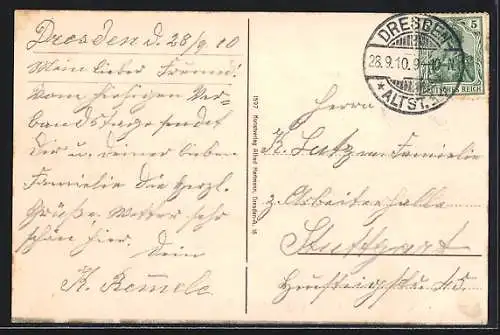 Dresden d. 28/9 10
Mein lieber Freund!
Vom hiesigen Ver-
bandstage sendet
dir u. deiner lieben
Familie die herzl.
Grüße. Wetter sehr
schön hier.
Dein
K. Remmele
1597 Kunstverlag Alfred Hartmann, Dresden-A. 16
DRESDEN
28.9.10. 9-10 N
* ALTST.
5
DEUTSCHES REICH
Herrn
K. Lutz u. Familie
z. Arbeiterhalle
Stuttgart